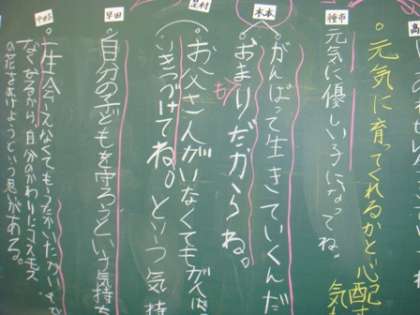 元気に育ってくれるかと心配
気
種市
元気に優しい子になってね。
木本
がんばって生きていくんだ
おまもりだからね。
も
お父さんがいなくてもがんば
いきつづけてね。という気持
早田
自分の子どもを守ろうという気持ち
一生会えなくてもう
なくなるから、自分のかわりにコスモス
の花をあげようという思いがある。